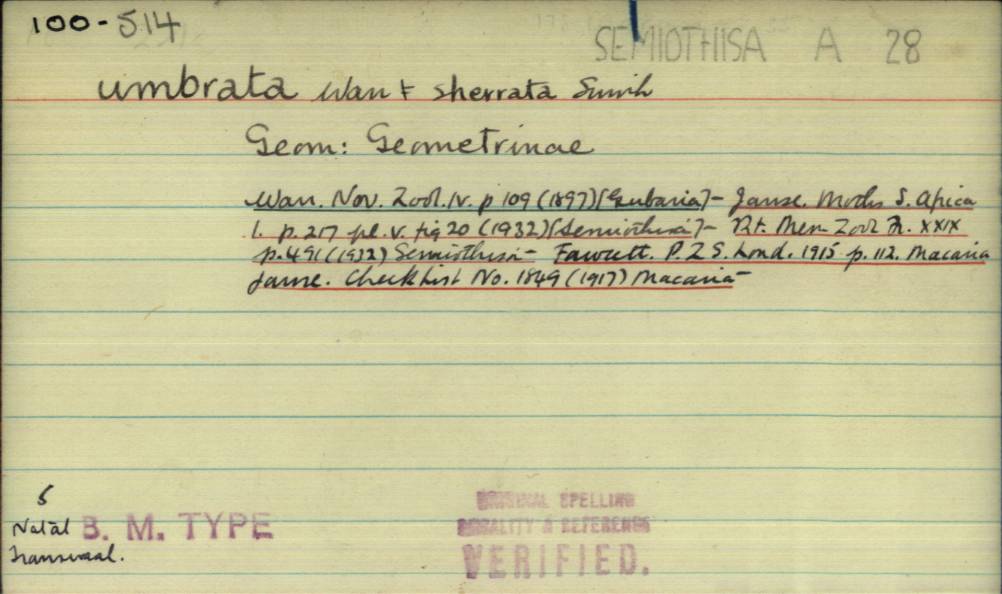 100-514
SEMIOTHISA A 28
umbrata Warr & sherrata Smith
Geom: Geometrinae
Warr. Nov. Zool. IV. p 109 (1897) [Gubaria] - Janse. Moths S. Africa
1. p. 217 pl. v. fig 20 (1932) [Semiothisa] - Pt. Mem Zool Fr. XXIX
p. 491 (1932) Semiothisa - Fawcett. P.Z.S. Lond. 1915 p. 112. Macaria
Janse. Check List No. 1849 (1917) Macaria -
Natal B. M. TYPE
Transvaal.
ORIGINAL SPELLING
LOCALITY & REFERENCE
VERIFIED.